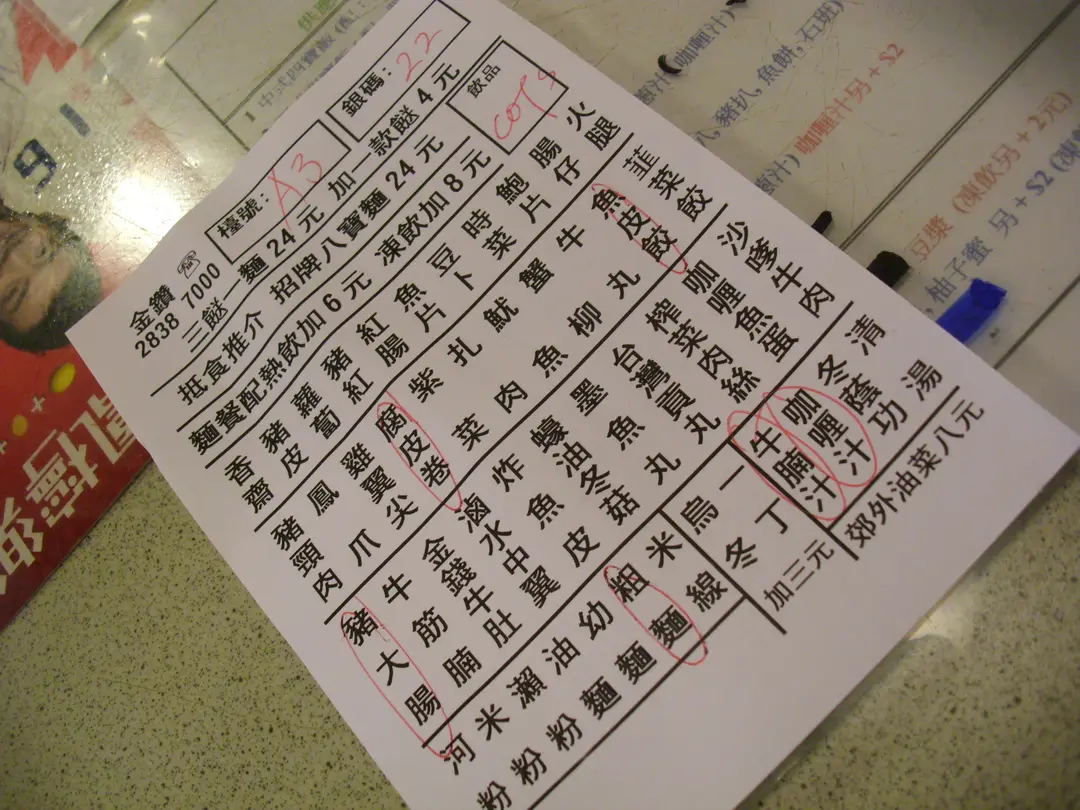 金鑽 ☏
2838 7000
檯號: A3
銀碼: 22
三餸一麵 24元 加一款餸 4元
抵食推介 招牌八寶麵 24元
麵餐配熱飲加 6元 凍飲加 8元
飲品
COTS
香齋
豬皮
蘿蔔
豬紅
紅腸
魚片
豆卜
時菜
鮑片
腸仔
火腿
豬頸肉
鳳爪
雞翼尖
腐皮卷
紫菜
扎肉
魷魚
蟹柳
牛丸
魚皮餃
韮菜餃
豬大腸
牛筋腩
金錢牛肚
滷水中翼
炸魚皮
蠔油冬菇
墨魚丸
台灣貢丸
榨菜肉絲
咖喱魚蛋
沙嗲牛肉
河粉
米粉
瀨粉
油麵
幼麵
粗麵
米線
烏冬
一丁
加三元
牛腩汁
咖喱汁
冬蔭功
清湯
郊外油菜八元
中式四寶飯
(咖喱汁)
豬扒, 魚餅, 石斑)
咖喱汁另 + S2
豆漿 (凍飲另 + 2元)
柚子蜜 另 + S2
91